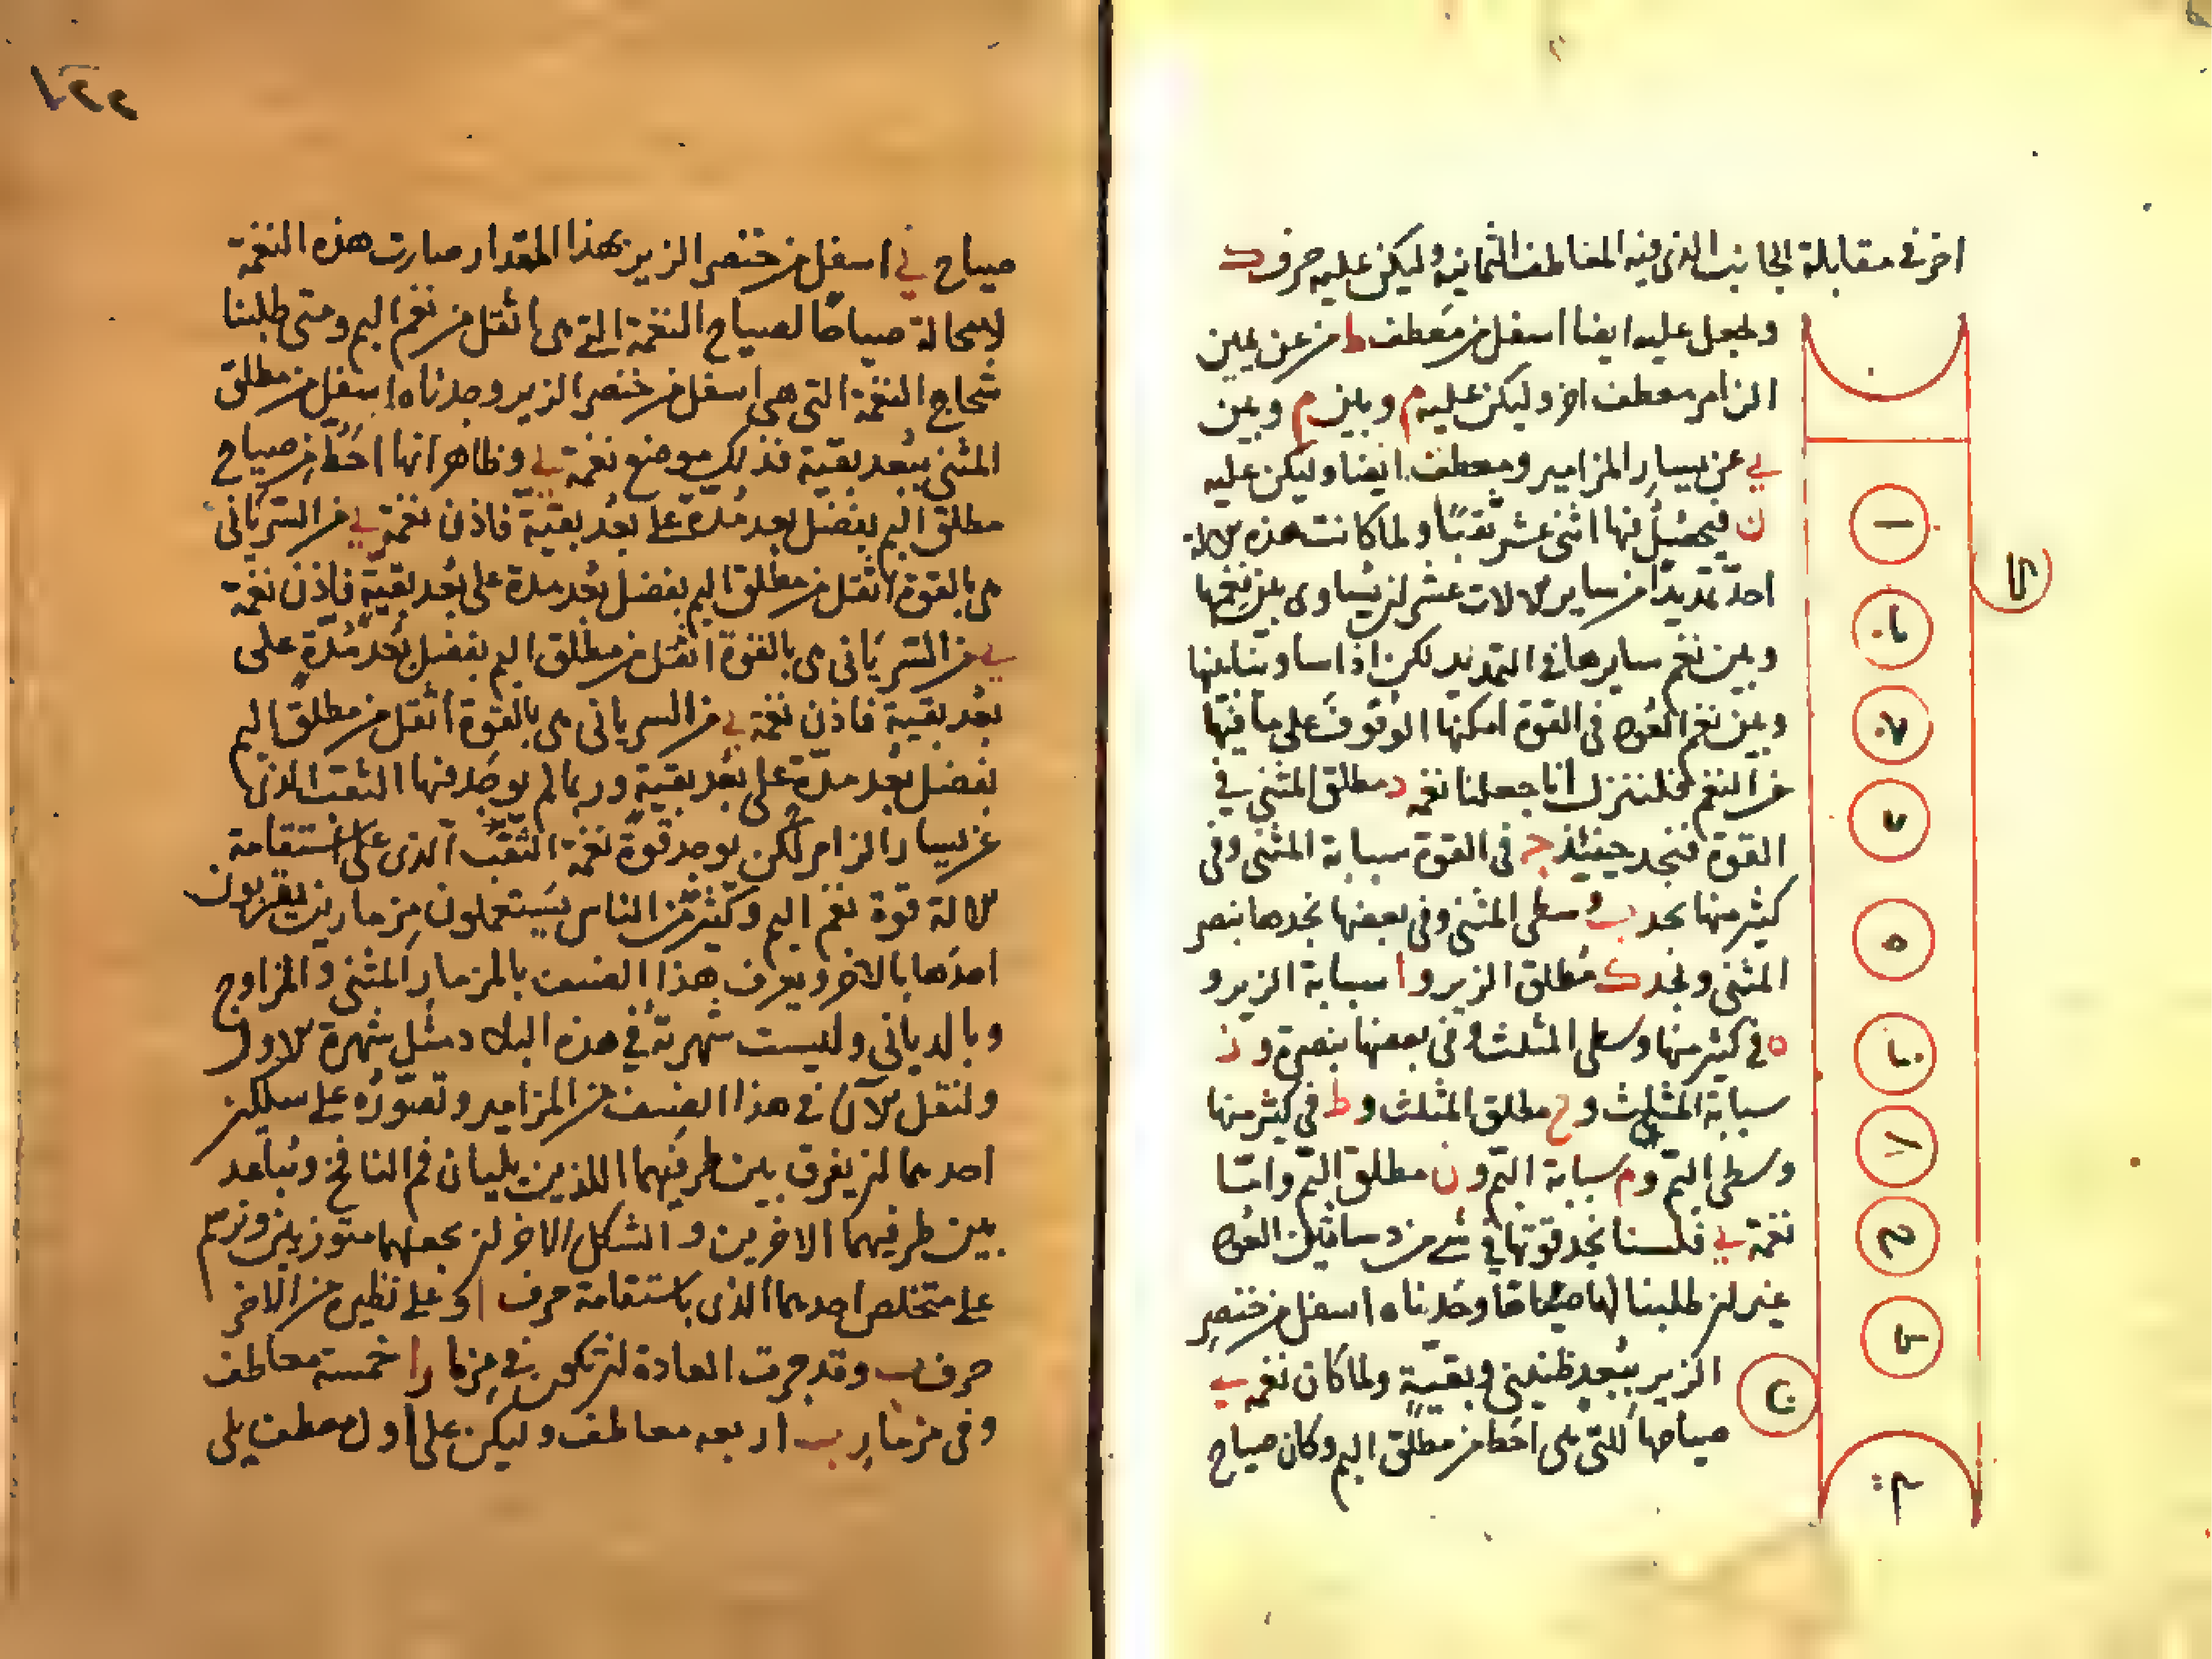 اخر في مقابلة الجانب الذي فيه المعاطف الثمانية وليكن عليه حرف ك
ولنجعل عليه ايضا اسفل من معطف ط من عن يمين
الزامر معطف اخر وليكن عليه م وبين م وبين
ي عن يسار المزامير ومعطف ايضا وليكن عليه
ن فيحصل فيها اثنى عشر ثقبا ولما كانت هذه الالة
احد تمديدا من ساير الالات عسر ان يساوى بين نغمها
وبين نغم سايرها في التمديد لكن اذا ساوينا بينها
وبين نغم العود في القوة امكنها الوقوف على ما فيها
من النغم فلننزل انا جعلنا نغمة د مطلق المثنى في
القوة فنجد حينئذ ج في القوة سبابة المثنى وفي
كثير منها نجد ب وسطى المثنى وفي بعضها نجدها بنصر
المثنى ونجد ك مطلق الزير و ا سبابة الزير و
ه في كثير منها وسطى المثلث وفي بعضها بنصره و ز
سبابة المثلث و ح مطلق المثلث و ط في كثير منها
وسطى البم و م سبابة البم و ن مطلق البم واما
نغمة ي فلسنا نجد قوتها في شي من دساتين العود
غير ان طلبنا لها صياحا وجدناه اسفل من خنصر
الزير ببعد طنيني وبقية ولما كان نغمة ي
صياحها للتي هي احط من مطلق البم وكان صياح
صياح ي في اسفل من خنصر الزير بهذا المقدار صارت هذه النغمة
لا محالة صياحا لصياح النغمة التي هي اثقل من نغم البم ومتى طلبنا
شحاج النغمة التي هي اسفل من خنصر الزير وجدناه اسفل من مطلق
المثنى ببعد بقية فذلك موضع نغمة ي وظاهر انها احط من صياح
مطلق البم بفضل بعد مدة على بعد بقية فاذن نغمة ي من السرياني
هي بالقوة اثقل من مطلق البم بفضل بعد مدة على بعد بقية فاذن نغمة
ي من السرياني هي بالقوة اثقل من مطلق البم بفضل بعد مدة على
بعد بقية فاذن نغمة ي من السرياني هي بالقوة اثقل من مطلق البم
بفضل بعد مدة على بعد بقية وربما لم يوجد فيها الثقب الذي
عن يسار الزامر لكن يوجد قوة نغمة الثقب الذي على استقامة
الالة قوة نغم البم وكثير من الناس يستعملون مزمارين يقربون
احدها بالاخر ويعرف هذا الصنف بالمزمار المثنى والمزاوج
وبالدياني وليست شهرته في هذه البلاد مثل شهرة الاول
ولنقل الان في هذا الصنف من المزامير وتصوره على شكلين
احدهما ان يفرق بين طرفيهما اللذين يليان فم النافخ ونباعد
بين طرفيهما الاخرين والشكل الاخر ان نجعلهما متوازيين ونرسم
على متخلص احدهما الذي باستقامة حرف ا وعلى نظيره من الاخر
حرف ب وقد جرت العادة ان تكون في مزمار ا خمسة معاطف
وفي مزمار ب اربعه معاطف وليكن على اول معطف يلي